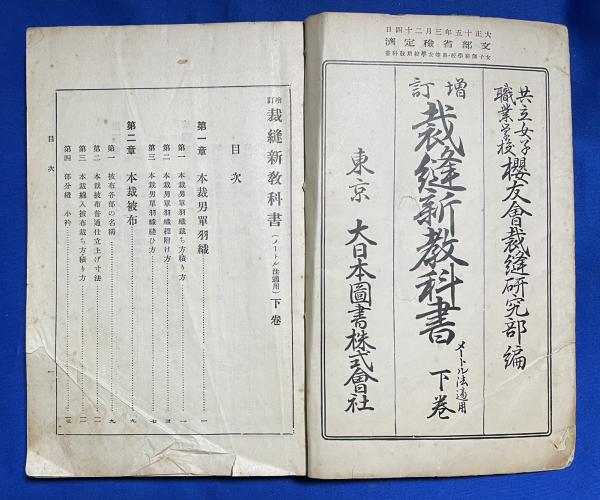 大正十五年三月二十四日
文部省檢定濟
女子師範學校・高等女學校用教科書
共立女子職業学校 櫻友會裁縫研究部編
増訂 裁縫新教科書 メートル法適用 下巻
東京 大日本圖書株式會社
増訂 裁縫新教科書(メートル法適用)下卷
目次
第一章 本裁男單羽織
第一 本裁男單羽織裁ち方積り方 一
第二 本裁男單羽織標附け方 四
第三 本裁男單羽織縫ひ方 七
第二章 本裁被布 九
第一 被布各部の名稱 九
第二 本裁被布普通仕立上げ寸法
第三 本裁綿入被布裁ち方積り方
第四 部分縫 小衿
目次 一